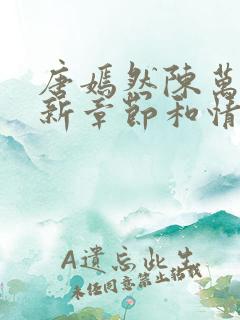 唐嫣然陳萬
新章節和情
A遺忘此生
未经同意禁止转载